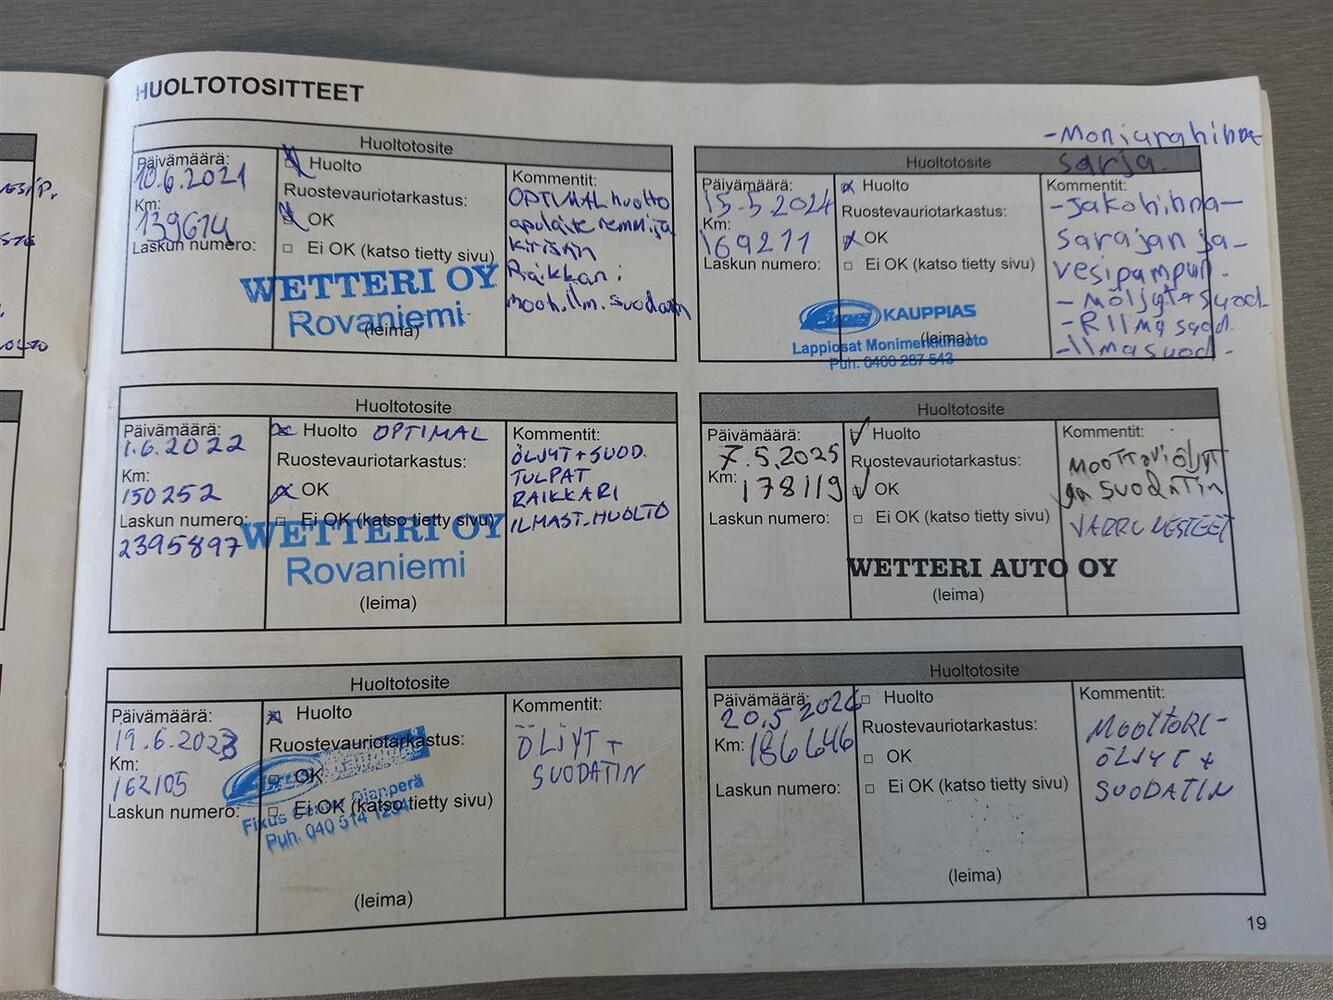 HUOLTOTOSITTEET
Huoltotosite
Päivämäärä:
10.6.2021
Km:
139614
Laskun numero:
Huolto
Ruostevauriotarkastus:
OK
Ei OK (katso tietty sivu)
WETTERI OY
Rovaniemi
(leima)
Kommentit:
OPTIMAL huolto
apulaite remmi ja
kiristin
Raikkari
moot.ilm.suodatin
Huoltotosite
Päivämäärä:
1.6.2022
Km:
150252
Laskun numero:
2395897
Huolto OPTIMAL
Ruostevauriotarkastus:
OK
Ei OK (katso tietty sivu)
WETTERI OY
Rovaniemi
(leima)
Kommentit:
ÖLJYT + SUOD.
TULPAT
RAIKKARI
ILMAST.HUOLTO
Huoltotosite
Päivämäärä:
19.6.2023
Km:
162105
Laskun numero:
Huolto
Ruostevauriotarkastus:
OK
Ei OK (katso tietty sivu)
Fixus
Puh. 040 514
(leima)
Kommentit:
ÖLJYT +
SUODATIN
- Moniurahihna
sarja.
Huoltotosite
Päivämäärä:
15.5.2024
Km:
169211
Laskun numero:
Huolto
Ruostevauriotarkastus:
OK
Ei OK (katso tietty sivu)
KAUPPIAS
(leima)
Lappiosat Monimerkkihuolto
Puh. 0400 287 543
Kommentit:
- Jakohihna-
sarajan ja-
vesipumpun.
- Möljyt + suod.
- RIlmasuod.
- Ilmasuod.
Huoltotosite
Päivämäärä:
7.5.2025
Km:
178119
Laskun numero:
Huolto
Ruostevauriotarkastus:
OK
Ei OK (katso tietty sivu)
WETTERI AUTO OY
(leima)
Kommentit:
MOOTTORIÖLJYT
ja SUODATIN
JARRUNESTEET
Huoltotosite
Päivämäärä:
20.5.2026
Km:
186646
Laskun numero:
Huolto
Ruostevauriotarkastus:
OK
Ei OK (katso tietty sivu)
(leima)
Kommentit:
MOOTTORI-
ÖLJYT +
SUODATIN
19